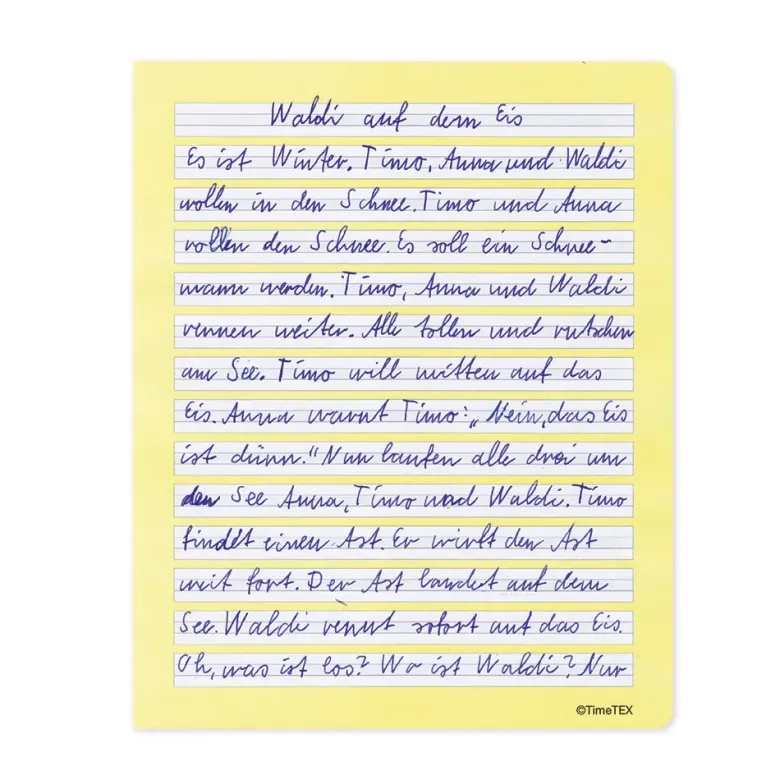 Waldi auf dem Eis
Es ist Winter. Timo, Anna und Waldi
wollen in den Schnee. Timo und Anna
rollen den Schnee. Es soll ein Schnee-
mann werden. Timo, Anna und Waldi
rennen weiter. Alle tollen und rutschen
am See. Timo will mitten auf das
Eis. Anna warnt Timo: „Nein, das Eis
ist dünn.“ Nun laufen alle drei um
den See Anna, Timo und Waldi. Timo
findet einen Ast. Er wirft den Ast
weit fort. Der Ast landet auf dem
See. Waldi rennt sofort auf das Eis.
Oh, was ist los? Wo ist Waldi? Nur
©TimeTEX